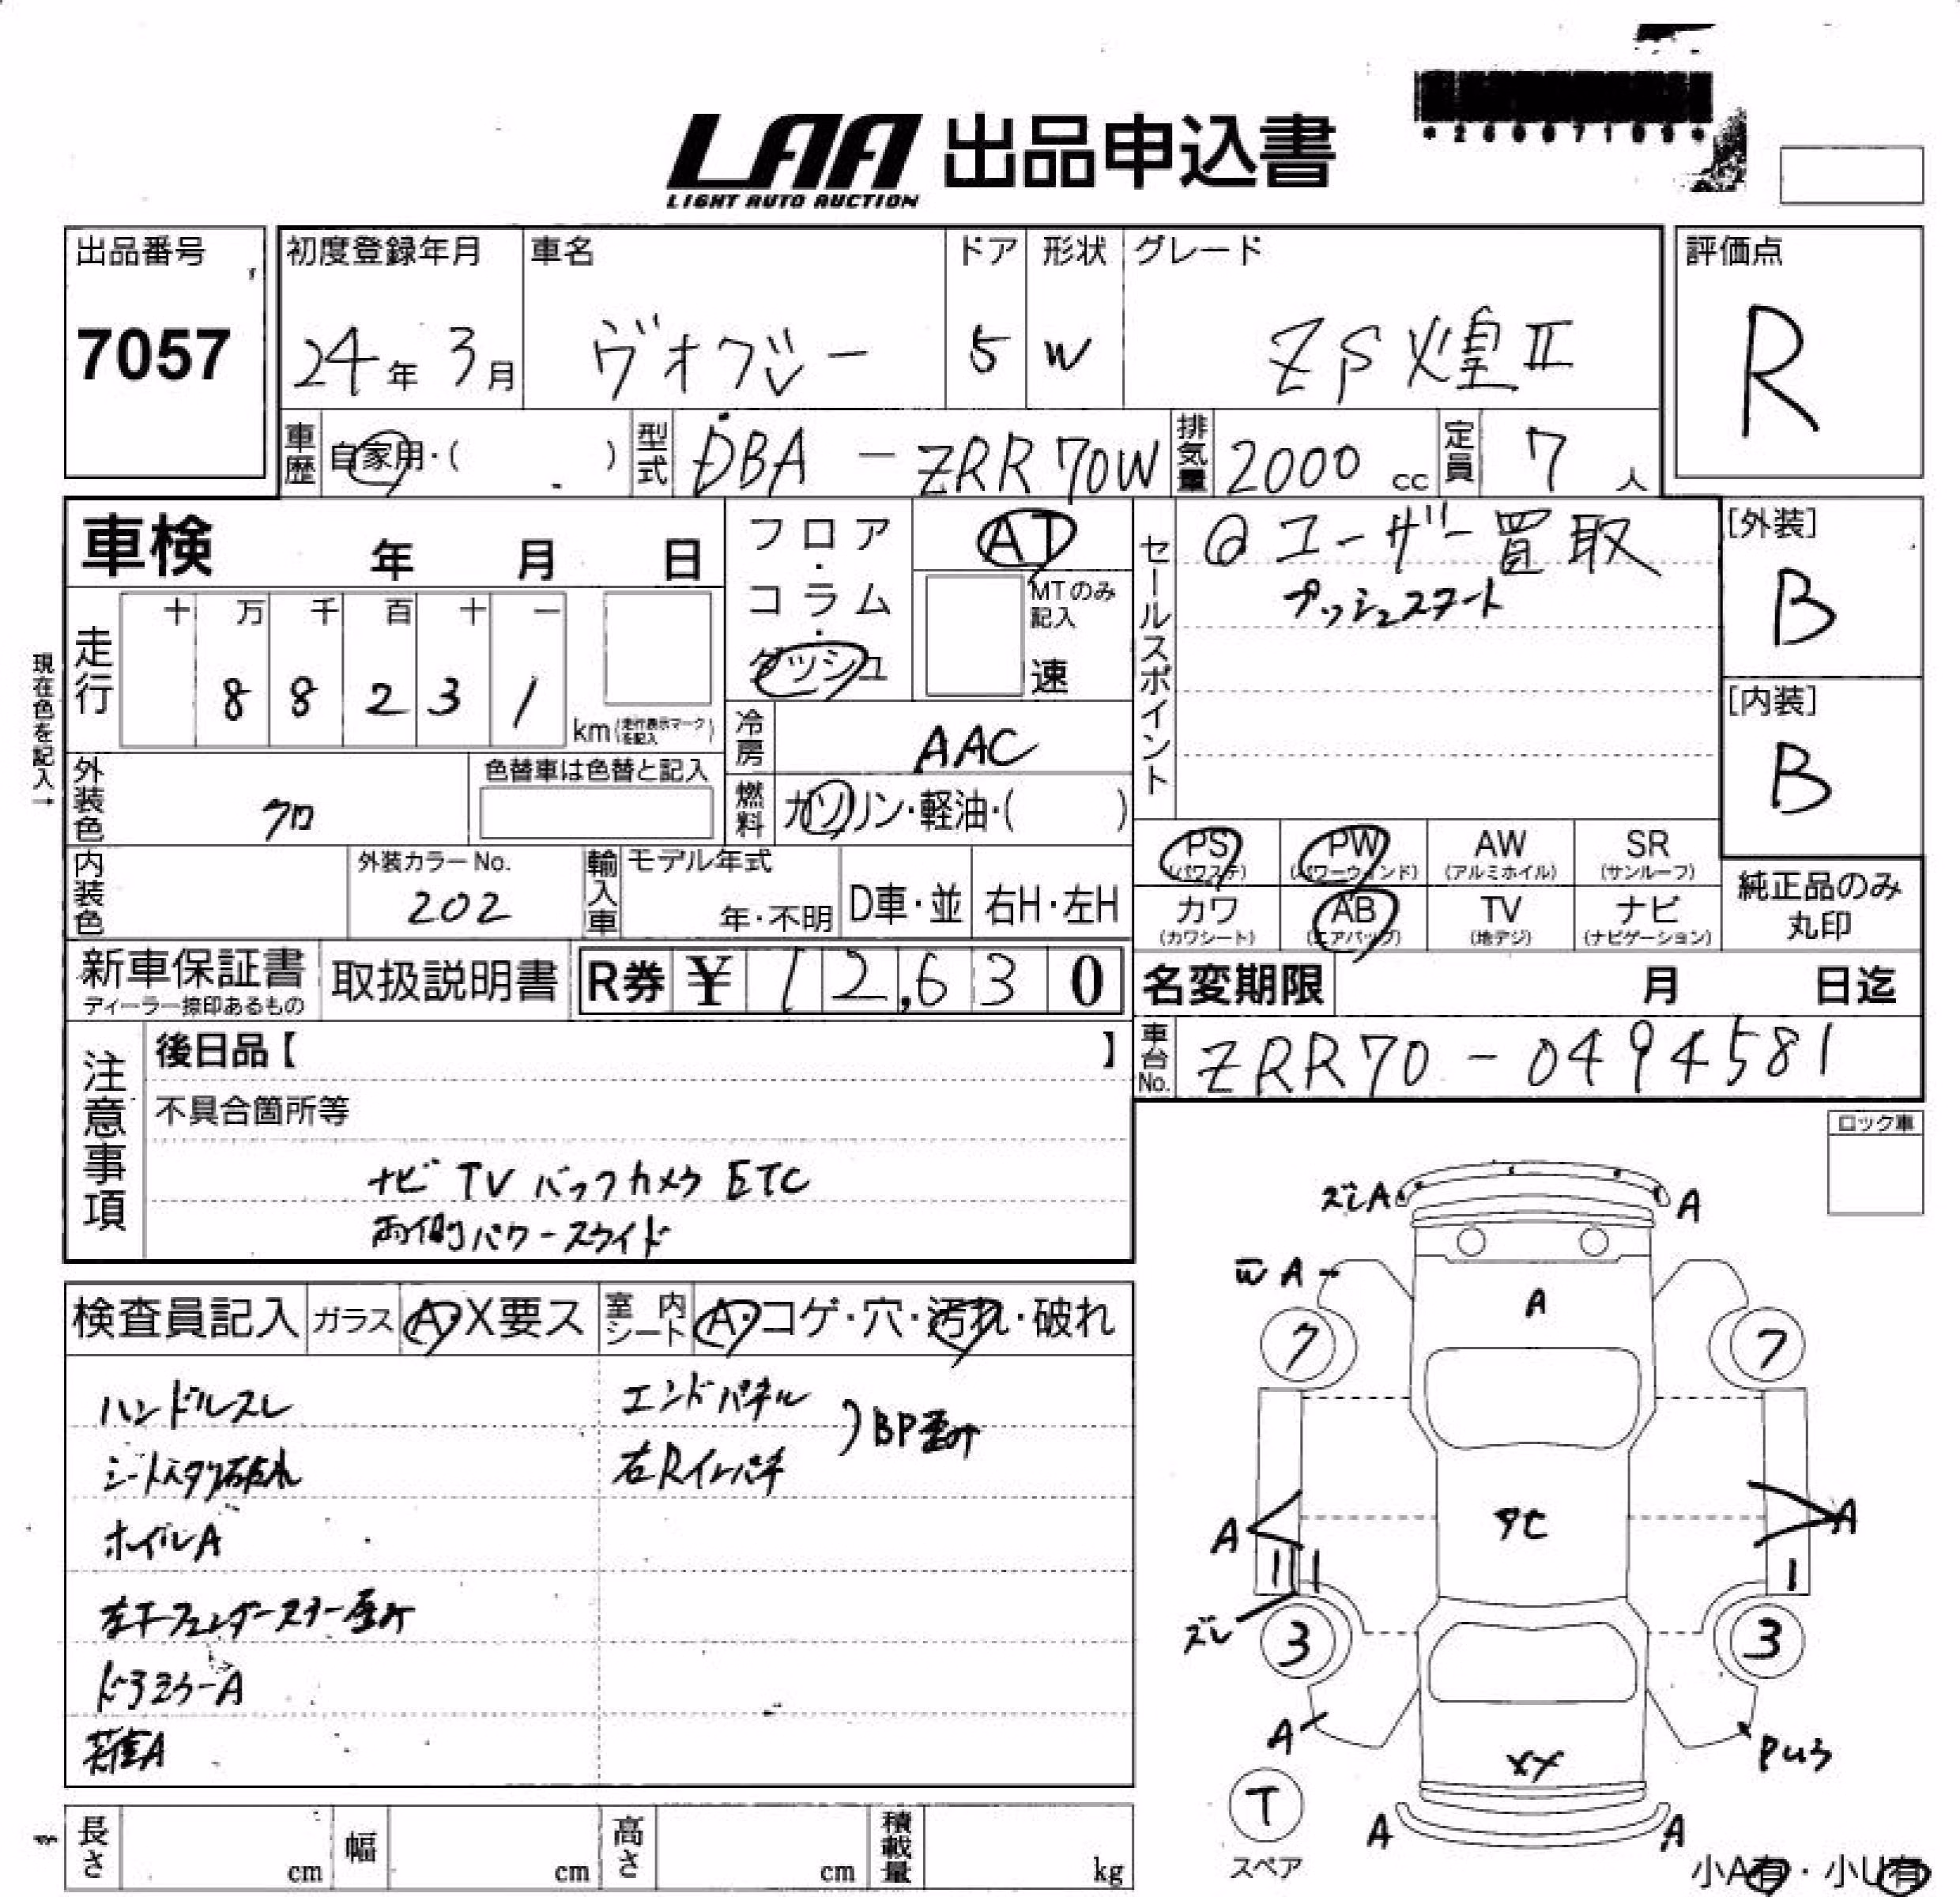 LAA 出品申込書
LIGHT AUTO AUCTION
出品番号
7057
初度登録年月
24年 3月
車名
ヴォクシー
ドア
5
形状
W
グレード
ZS煌II
評価点
R
車歴
自家用・( )
型式
DBA - ZRR70W
排気量
2000 cc
定員
7 人
車検 年 月 日
フロア・コラム・ダッシュ
AT
MTのみ記入
速
セールスポイント
ユーザー買取
プッシュスタート
[外装]
B
[内装]
B
現在色を記入→
走行
十 万 千 百 十 一
8 8 2 3 1
km(走行表示マークを記入)
冷房
AAC
燃料
ガソリン・軽油・( )
外装色
クロ
色替車は色替と記入
内装色
外装カラーNo.
202
輸入車
モデル年式
年・不明
D車・並
右H・左H
PS (パワステ)
PW (パワーウインド)
AW (アルミホイル)
SR (サンルーフ)
カワ (カワシート)
AB (エアバッグ)
TV (地デジ)
ナビ (ナビゲーション)
純正品のみ丸印
新車保証書
ディーラー捺印あるもの
取扱説明書
R券 ¥ 12,630
名変期限 月 日迄
車台No.
ZRR70-0494581
注意事項
後日品【 】
不具合箇所等
ナビ TV バックカメラ ETC
両側パワースライド
ロック車
検査員記入
ガラス
A・X要ス
室内シート
A・コゲ・穴・汚れ・破れ
ハンドルスレ
ホイルA
ドラミラーA
エンドパネル
右Rインパネ
BP歪み
ズレA
A
A
A
7
7
A
A
ズレ
3
3
A
XX
T
スペア
A
A
小A有・小U有
長さ cm
幅 cm
高さ cm
積載量 kg